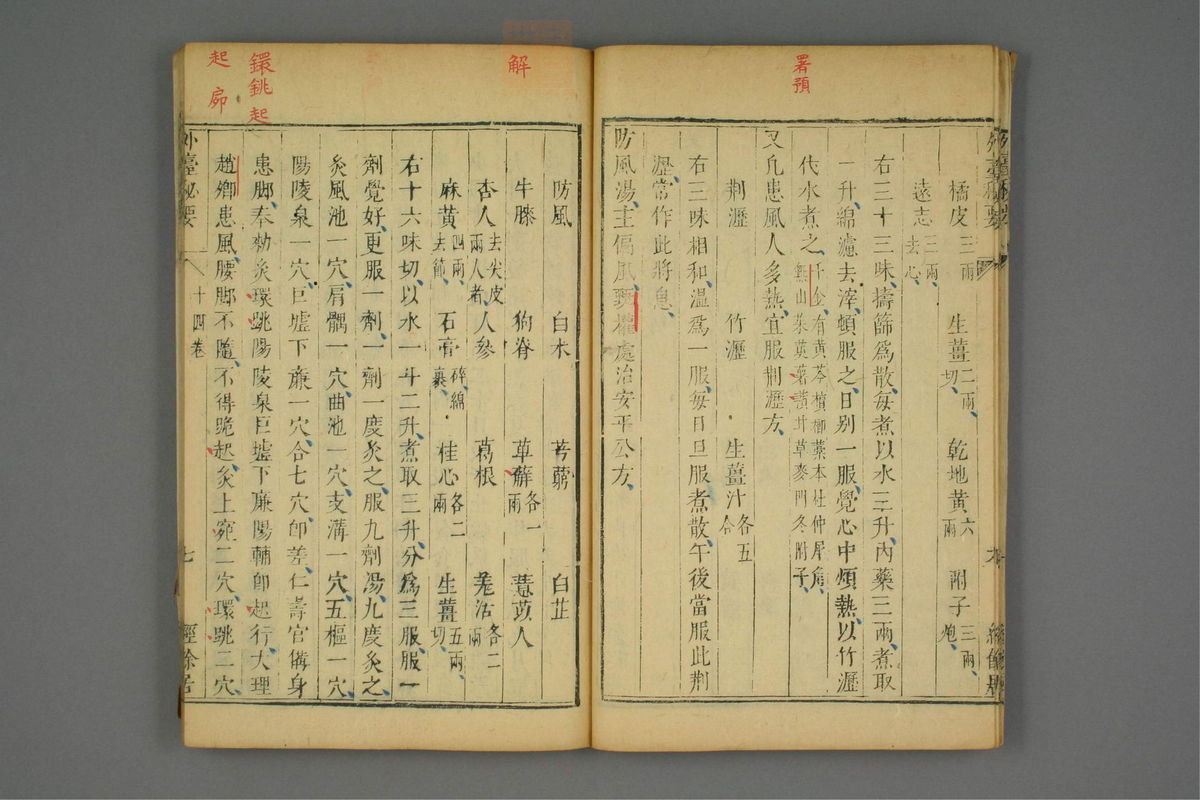 署預
橘皮三兩 生薑二兩切 乾地黃六兩 附子三兩炮
遠志三兩去心
右三十三味擣篩爲散每煮以水三升內藥三兩煮取
一升綿濾去滓頓服之日別一服覺心中煩熱以竹瀝
代水煮之千金有黃芩檳榔藁本杜仲犀角無山茱萸薯蕷甘草麥門冬附子
又凡患風人多熱宜服荊瀝方
荆瀝 竹瀝 生薑汁各五合
右三味相和溫爲一服每日旦服煮散午後當服此荆
瀝常作此將息
防風湯主偏風甄權處治安平公方
解
防風 白朮 芎藭 白芷
牛膝 狗脊 萆薢各一兩 薏苡人
杏人去尖皮兩人者 人參 葛根 羌活各二兩
麻黃四兩去節 石膏碎綿裹 桂心各二兩 生薑五兩切
右十六味切以水一斗二升煮取三升分爲三服服一
劑覺好更服一劑一劑一度灸之服九劑湯九度灸之
灸風池一穴肩髃一穴曲池一穴支溝一穴五樞一穴
陽陵泉一穴巨墟下廉一穴合七穴卽差仁壽宮備身
鐶銚起
患脚奉勑灸環跳陽陵泉巨墟下廉陽輔卽起行大理
起 𡱈
趙卿患風腰脚不隨不得跪起灸上窌二穴環跳二穴
外臺秘要 十四卷 七 經餘居